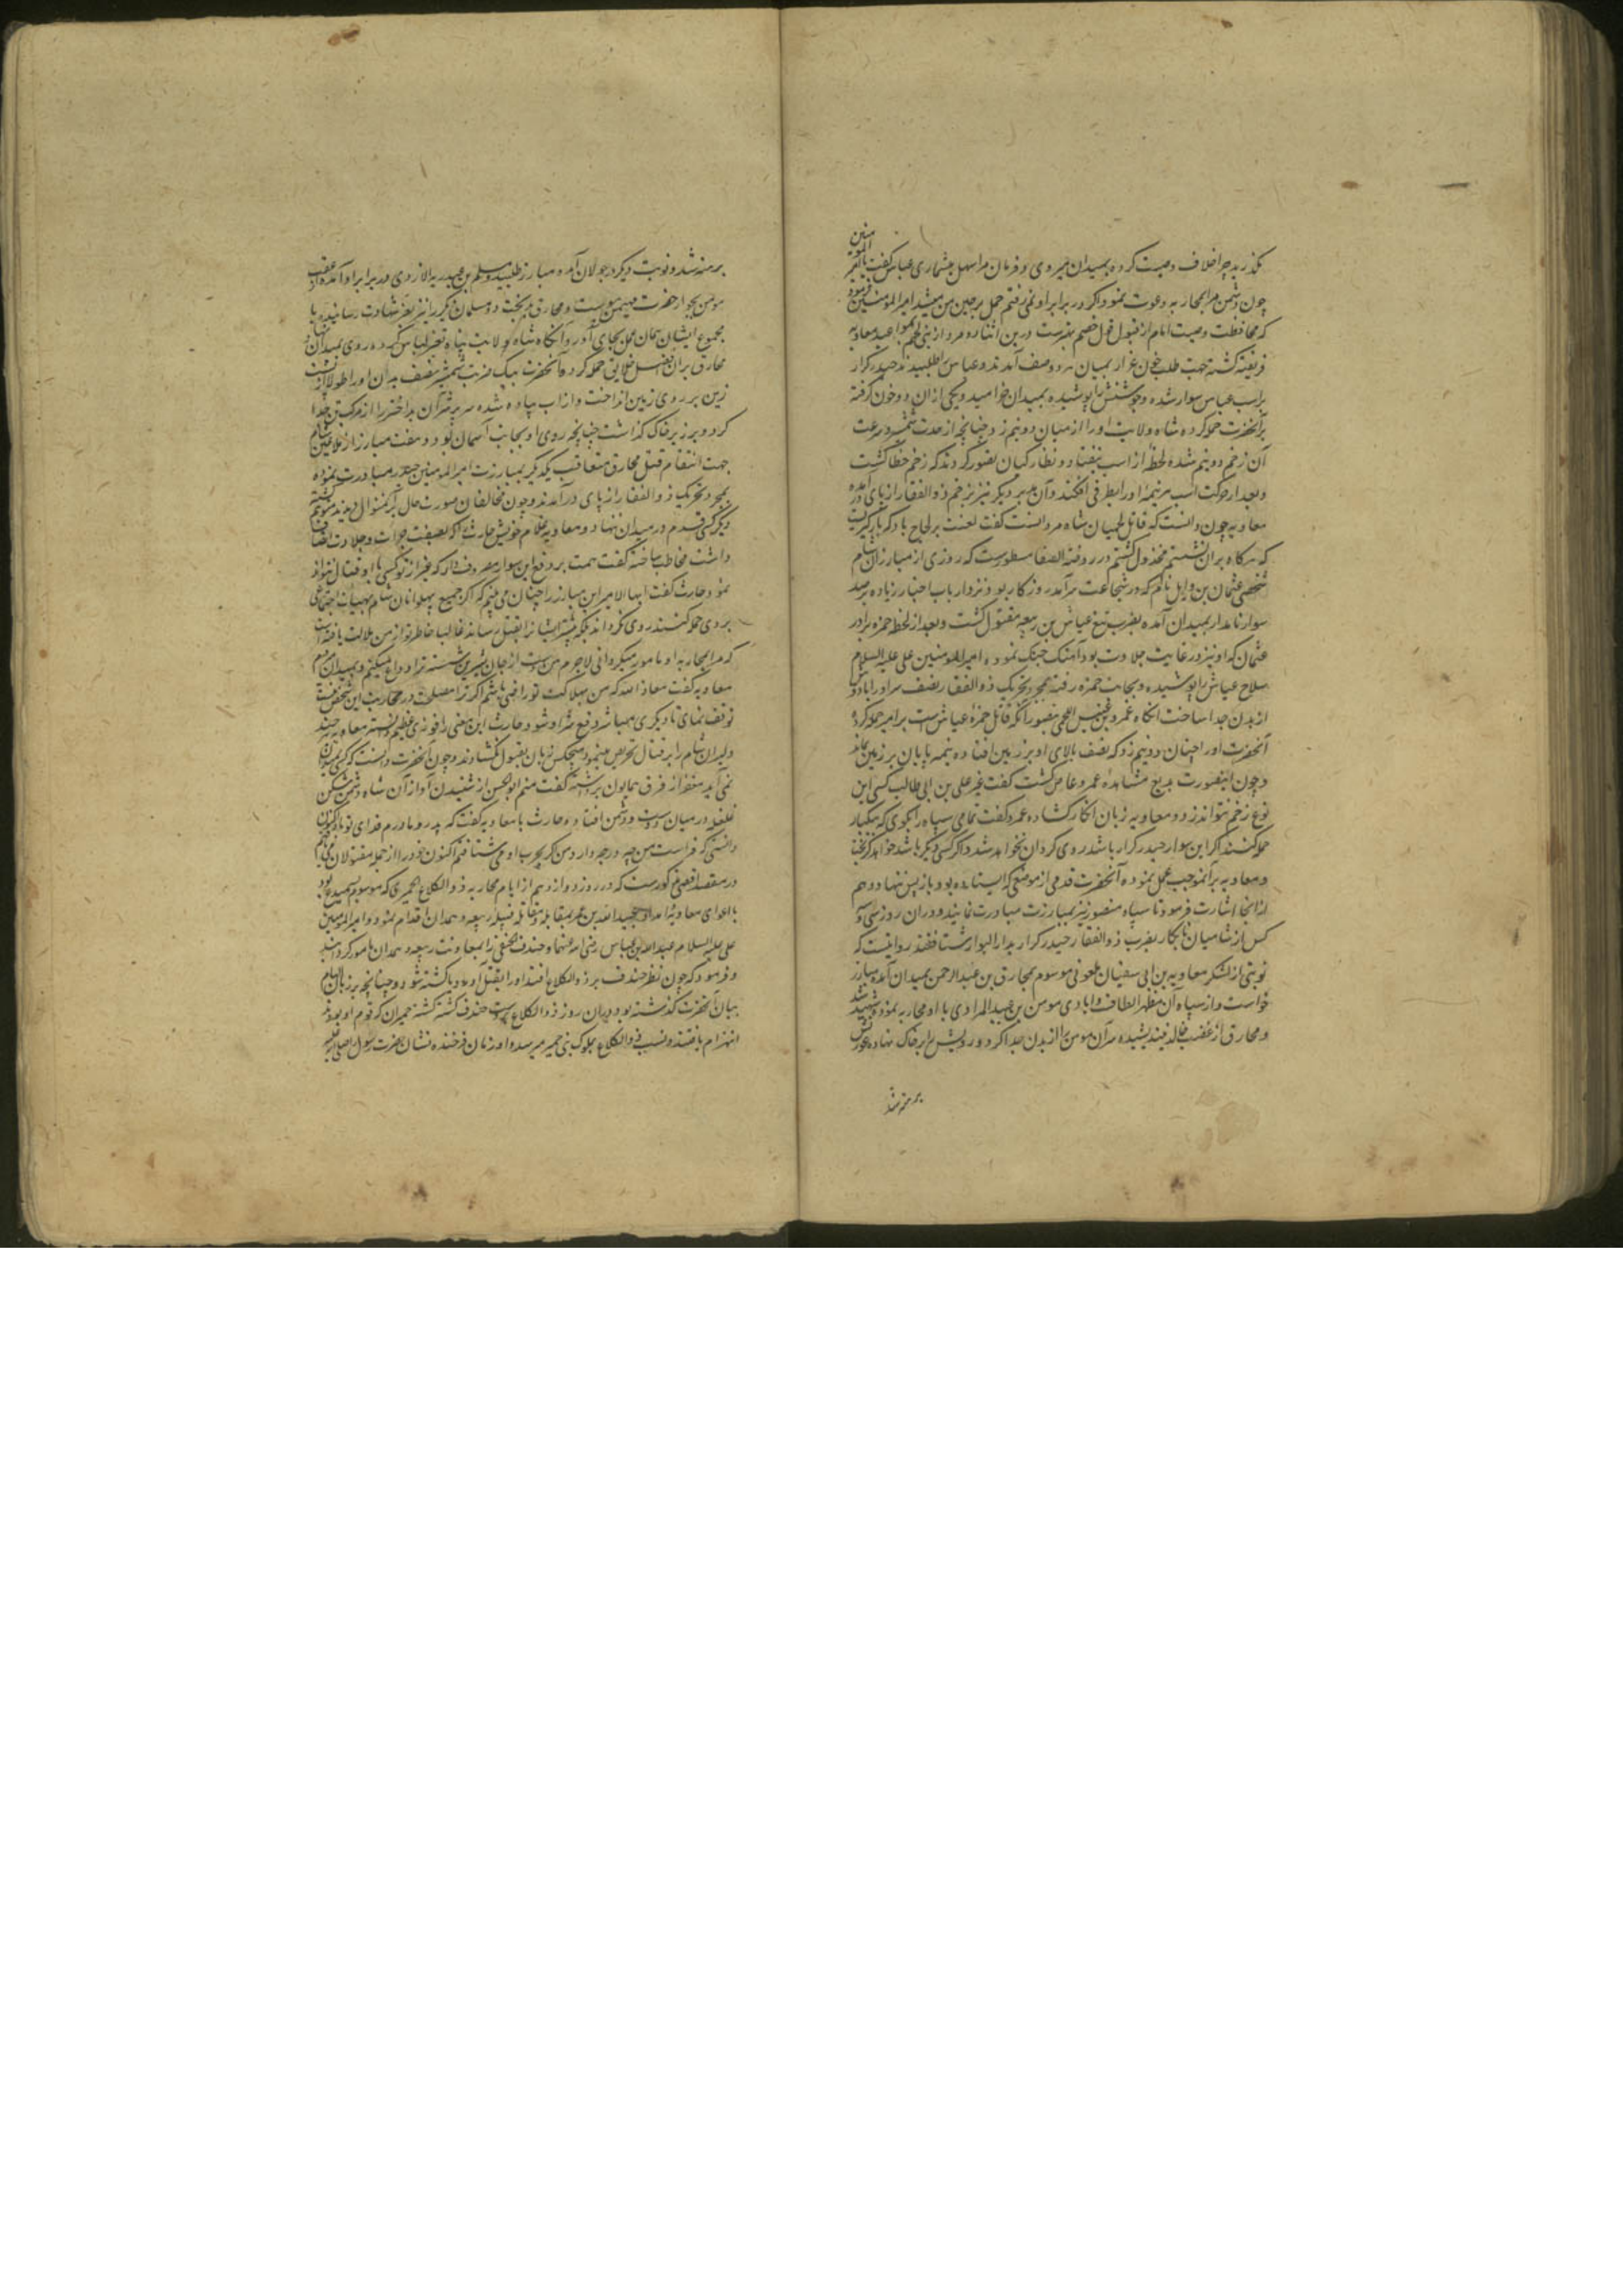 بگذرید چرا خلاف وصیت کرده بمیدان میروی و فرمان مرا سهل میشماری عباس گفت یا امیر المؤمنین
چون دشمن مرا بمحاربه دعوت نمود اگر در برابر او نمی‌رفتم حمل بر جبن من میشد امیر المؤمنین فرمود
که محافظت وصیت امام از قبول قول خصم بهترست درین اثنا دو مرد از بنی لخم بمواعید معاویه
فریفته گشته جهت طلب خون غرار بمیان هر دو صف آمدند و عباس را طلبیدند حیدر کرار
بر اسب عباس سوار شده و جوشنش را پوشیده بمیدان خرامید و یکی از ان دو خون گرفته
بر آنحضرت حمله کرده شاه ولایت او را از میان دونیم زد چنانچه از حدت شمشیر و سرعت
آن زخم دونیم شده لحظهٔ از اسب نیفتاد و نظارکیان تصور کردند که زخم خطا گشت
و بعد از حرکت اسب هر نیمهٔ او را بطرفی افکند و آن مدبر دیگر نیز بزخم ذو الفقار از پای در آمده
معاویه چون دانست که قاتل لخمیان شاه مردانست گفت لعنت بر لجاج باد که بار گیریست
که هرگاه بران نشستم مخذول گشتم در روضة الصفا مسطورست که روزی از مبارزان شام
شخصی عثمان بن وایل نام که در شجاعت سرآمد روزگار بود و نزد ارباب اخبار زیاده بر صد
سوار نامدار بمیدان آمده بضرب تیغ عیاش بن ربیعه مقتول گشت و بعد از لحظه حمزه برادر
عثمان که او نیز در غایت جلادت بود آهنگ جنگ نموده امیر المؤمنین علی علیه السلام
سلاح عیاش را پوشیده و بجانب حمزه رفته بمجرد تحریک ذو الفقار نصف سر او را با دوش
از بدن جدا ساخت انگاه عمرو بن اللخمی بتصور آنکه قاتل حمزه عیاش است برامیر حمله کرد
آنحضرت او را چنان دونیم زد که نصف بالای او بر زمین افتاده نیمه پایان بر زین بماند
و چون اینصورت بدیع مشاهده عمرو عاص گشت گفت غیر علی بن ابی طالب کسی این
نوع زخم نتواند زد و معاویه زبان انکار گشاده عمرو گفت تمامی سپاه را بگوی که بیکبار
حمله کنند اگر این سوار حیدر کرار باشد روی گردان نخواهد شد و اگر کسی دیگر باشد خواهد گریخت
و معاویه برانموجب عمل نموده آنحضرت قدمی از موضعی که ایستاده بود باز پس ننهاد و هم
از انجا اشارت فرمود تا سپاه منصور نیز بمبارزت مبادرت نمایند و دران روز سی و سه
کس از شامیان نابکار بضرب ذو الفقار حیدر کرار بدار البوار شتافتند روایتست که
نوبتی از لشکر معاویه بن ابی سفیان ملعونی موسوم بمخارق بن عبد الرحمن بمیدان آمده مبارز
خواست و از سپاه آن مظهر الطاف و ایادی مومن بن عبید المرادی با او محاربه نموده شهید شد
و مخارق از غضب خالد نیندیشیده سر آن مومن را از بدن جدا کرد و رویش را بر خاک نهاده عورتش
برهنه شد
برهنه شد و نوبت دیگر در جولان آمده مبارز طلبید و مسلم بن عبد ربه الازدی در برابر او آمده از عقب
مومن بجوار حضرت مهیمن پیوست و مخارق بدبخت دو مسلمان دیگر را نیز بعز شهادت رسانیده با
مجموع ایشان همان عمل بجای آورد و آنگاه شاه ولایت پناه تغیر لباس کرده روی بمیدان نهاد
مخارق بران افضل خلایق حمله کرده آنحضرت بیک ضربت شمشیر نصف بدن او را طولا از پشت
زین بر روی زمین انداخت و از اسب پیاده شده سر پر شر آن بد اختر را از مرکب تن جدا
کرد و بر زبر خاک گذاشت چنانچه روی او بجانب آسمان بود و هفت مبارز از ملاعین شام
جهت انتقام قتل مخارق متعاقب یکدیگر بمبارزت امیر المومنین حیدر مبادرت نموده
بمجرد تحریک ذو الفقار از پای درآمدند و چون مخالفان صورت حال برانمنوال دیدند متوهم گشته
دیگر کسی قدم در میدان ننهاد و معاویه غلام خویش حارث را که بصفت جرات و جلادت اتصاف
داشت مخاطب ساخته گفت همت بر دفع این سوار مصروف دار که غیر از تو کسی با او قتال نتواند
نمود حارث گفت ایها الامیر این مبارز را چنان می‌بینم که اگر جمیع پهلوانان شام بهیات اجتماعی
بر وی حمله کنند روی نگرداند بلکه بیشتر ایشان را بقتل رساند غالبا خاطر تو از من ملالت یافته است
که مرا بمحاربه او مامور میگردانی لاجرم من دست از جان شیرین شسته ترا وداع میکنم و بمیدان میروم
معاویه گفت معاذ الله که من بهلاکت تو راضی باشم اگر ترا مصلحت در محاربت این شخص نیست
توقف نمای تا دیگری مباشر دفع شر او شود حارث این معنی را فوزی عظیم دانسته معاویه هر چند
دلیران شام را بر قتال تحریص مینمود هیچکس زبان بقبول نگشادند و چون آنحضرت دانست که کسی بمیدان
نمی‌آید مغفر از فرق همایون برداشته گفت منم ابو الحسن از شنیدن آواز آن شاه دشمن شکن
غلغله در میان دوست و دشمن افتاده حارث با معاویه گفت که پدر و مادرم فدای تو باد اکنون
دانستی که فراست من چه درجه دارد و من اگر بحرب او می‌شتافتم اکنون خود را از جمله مقتولان می‌دیدم
در مقصد اقصی مذکورست که در روز دوازدهم از ایام محاربه ذو الکلاع حمیری که موسوم بسمیدع بود
باغوای معاویه بامداد عبید الله بن عمر بمقابله و مقاتله قبیله ربیعه و همدان اقدام نمود و امیر المومنین
علی علیه السلام عبد الله بن عباس رضی الله عنهما و خندف الحنفی را بمعاونت ربیعه و همدان مامور گردانید
و فرمود که چون نظر خندف بر ذو الکلاع افتد او را بقتل آورد و یا کشته شود و چنانچه بر زبان الهام
بیان آنحضرت گذشته بود دران روز ذو الکلاع بدست خندف کشته گشته حمیران که قوم او بودند
انهزام یافتند و نسب ذو الکلاع بملوک بنی حمیر میرسد و او در زمان فرخنده نشان حضرت رسول